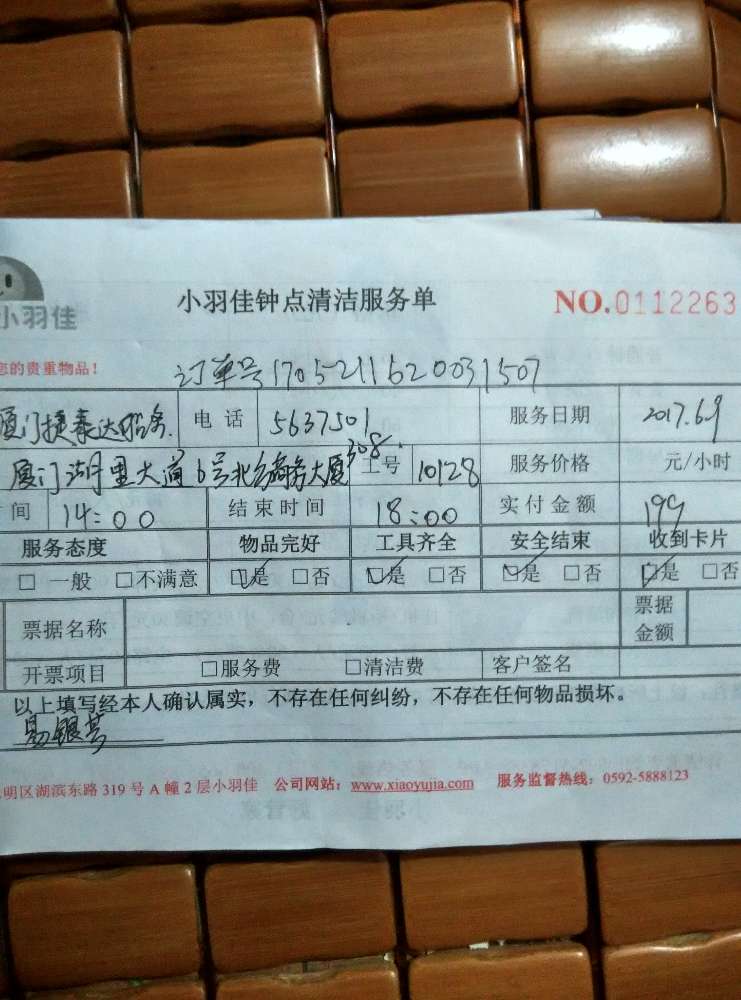 小羽佳
小羽佳钟点清洁服务单 NO.0112263
您的贵重物品! 订单号17052111620031507
厦门捷泰达船务 电话 5637501 服务日期 2017.6.9
厦门湖里大道6号北方商务大厦308 工号 10128 服务价格 元/小时
间 14:00 结束时间 18:00 实付金额 199
服务态度 物品完好 工具齐全 安全结束 收到卡片
□ 一般 □不满意 ☑是 □否 ☑是 □否 ☑是 □否 ☑是 □否
票据名称 票据金额
开票项目 □服务费 □清洁费 客户签名
以上填写经本人确认属实，不存在任何纠纷，不存在任何物品损坏。
易银
明区湖滨东路319号A幢2层小羽佳 公司网站：www.xiaoyujia.com 服务监督热线：0592-5888123